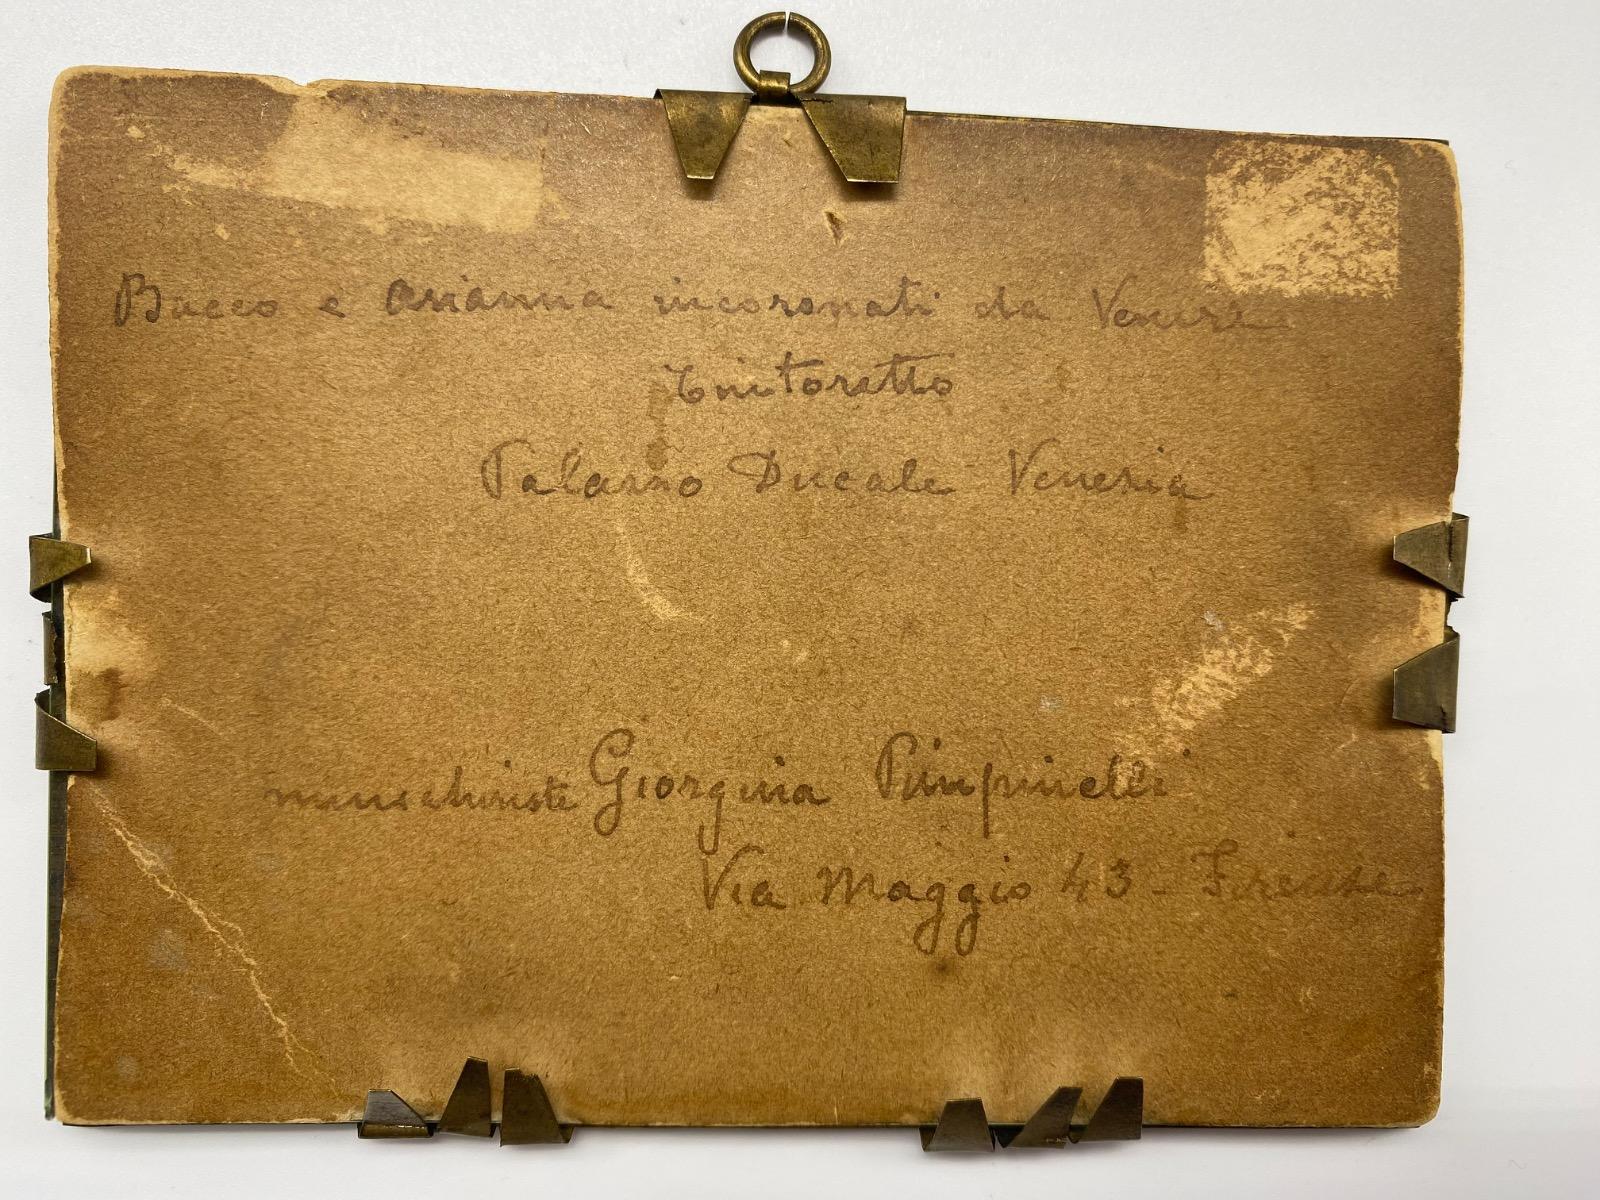 Bacco e Arianna incoronati da Venere
Tintoretto
Palazzo Ducale Venezia
Giorgina Pimpinelli
Via Maggio 43 - Firenze